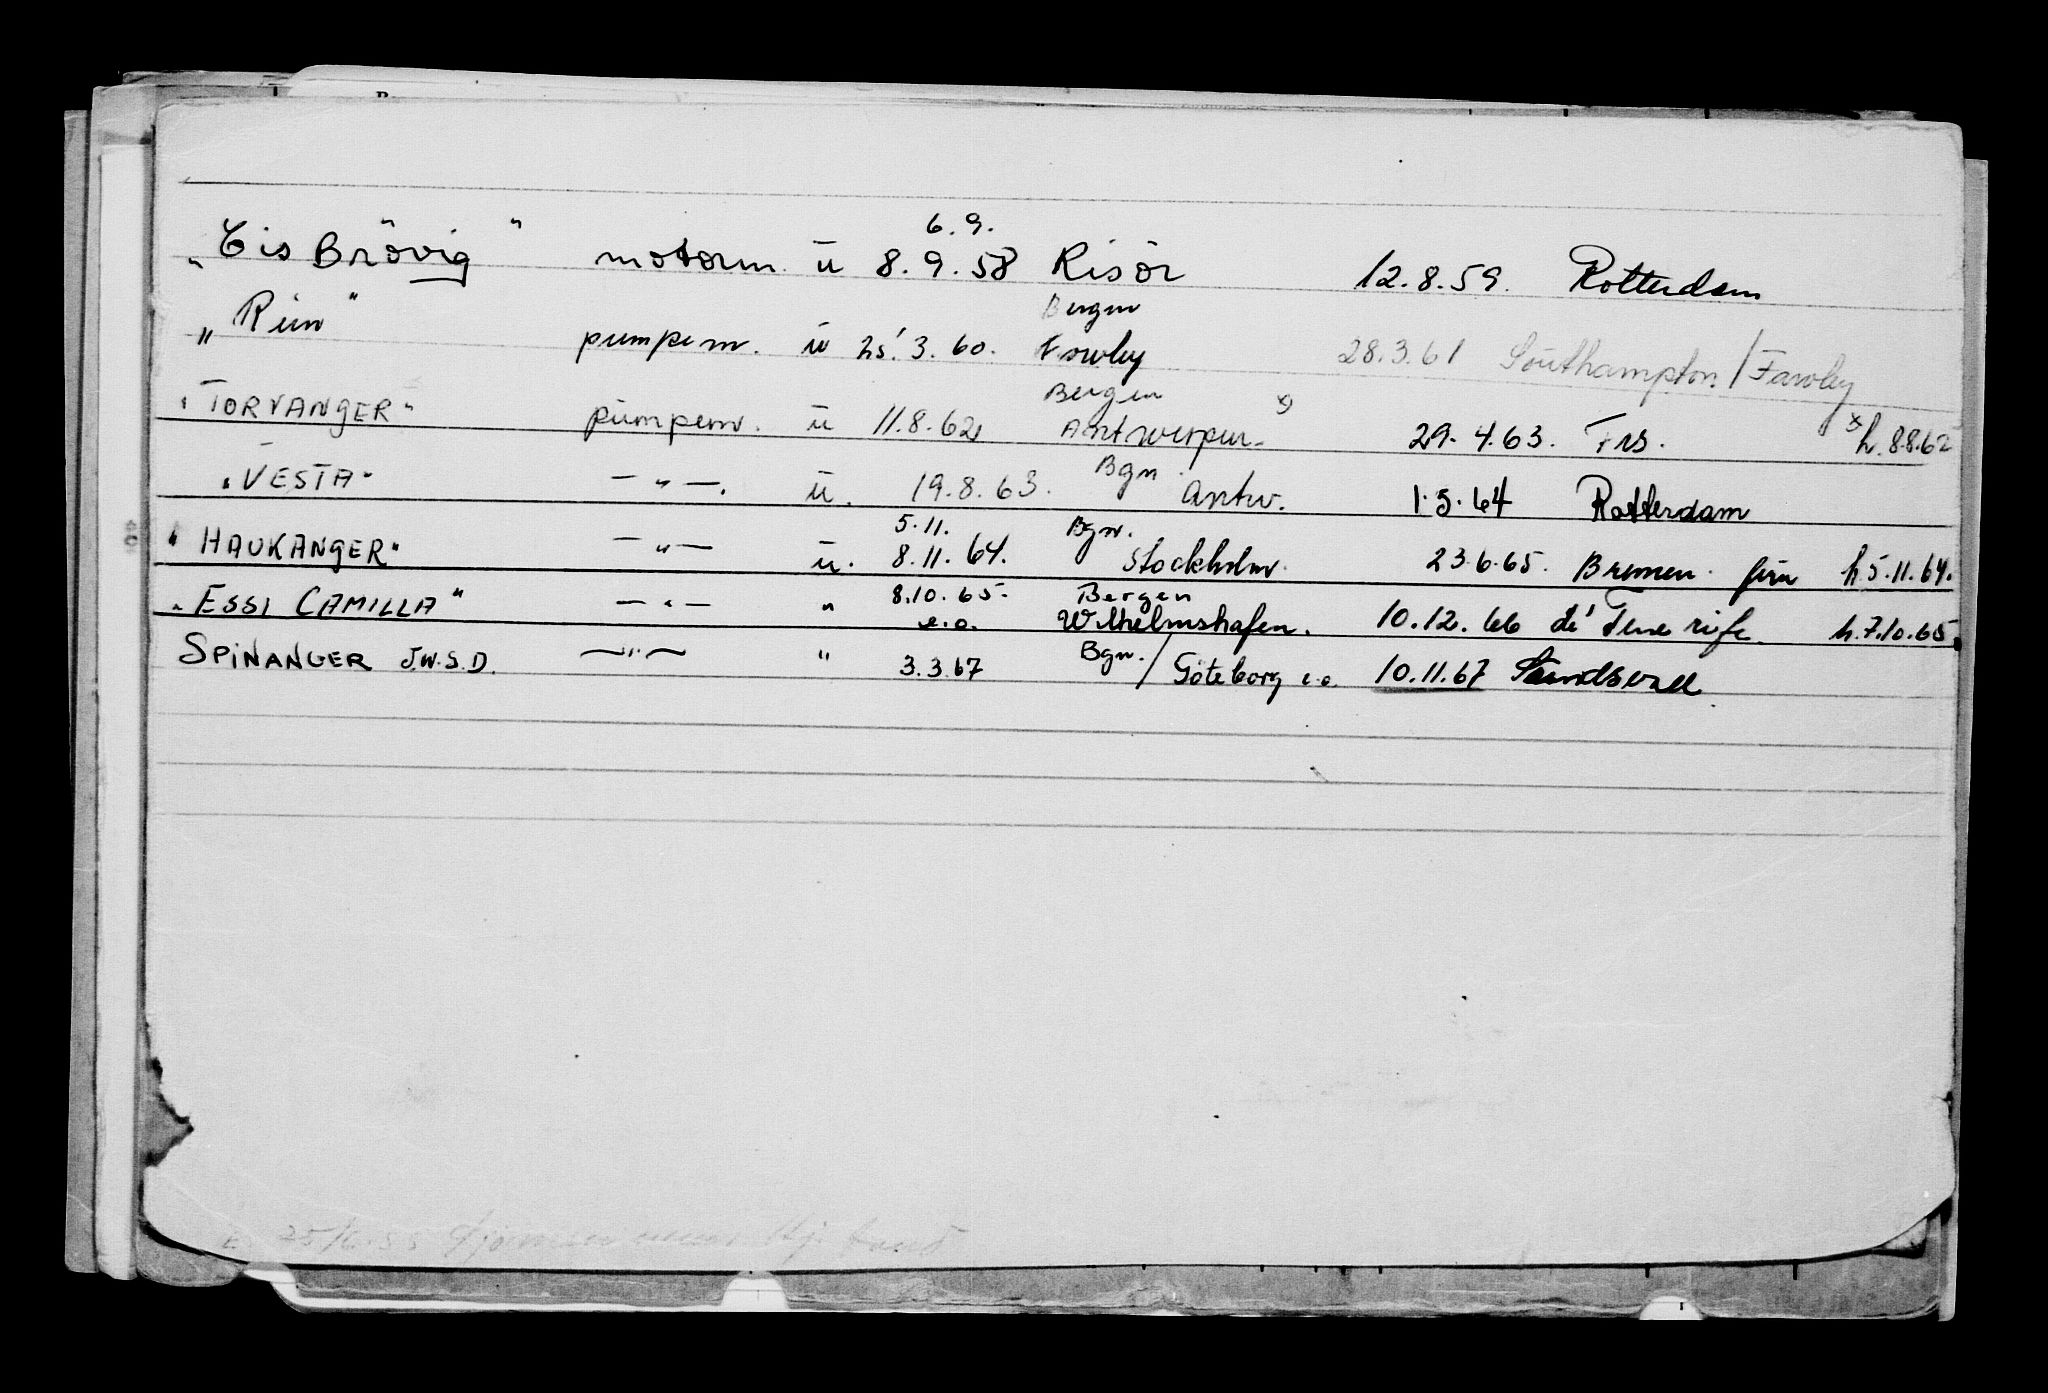 6.9.
"Cis Brövig" motorm. u 8.9.58 Risör 12.8.59. Rotterdam
Bergen
"Rim" pumpem. u 25.3.60. Fawley 28.3.61 Southampton/Fawley
Bergen
"TORVANGER" pumpem. u 11.8.62 Antwerpen. x) 29.4.63. Frs. x h. 8.8.62
Bgn
"VESTA" — " —. u. 19.8.63. Antw. 1.5.64 Rotterdam
5.11. Bgn.
"HAUKANGER" — " — u. 8.11.64. Stockholm. 23.6.65. Bremen. h 5.11.64.
8.10.65. Bergen
"ESSI CAMILLA" — " — " e.o. Wilhelmshafen. 10.12.66 Tenerife. h. 7.10.65.
SPINANGER J.W.S.D. — " — " 3.3.67 Bgn./Göteborg e.o. 10.11.67 Sundsvall